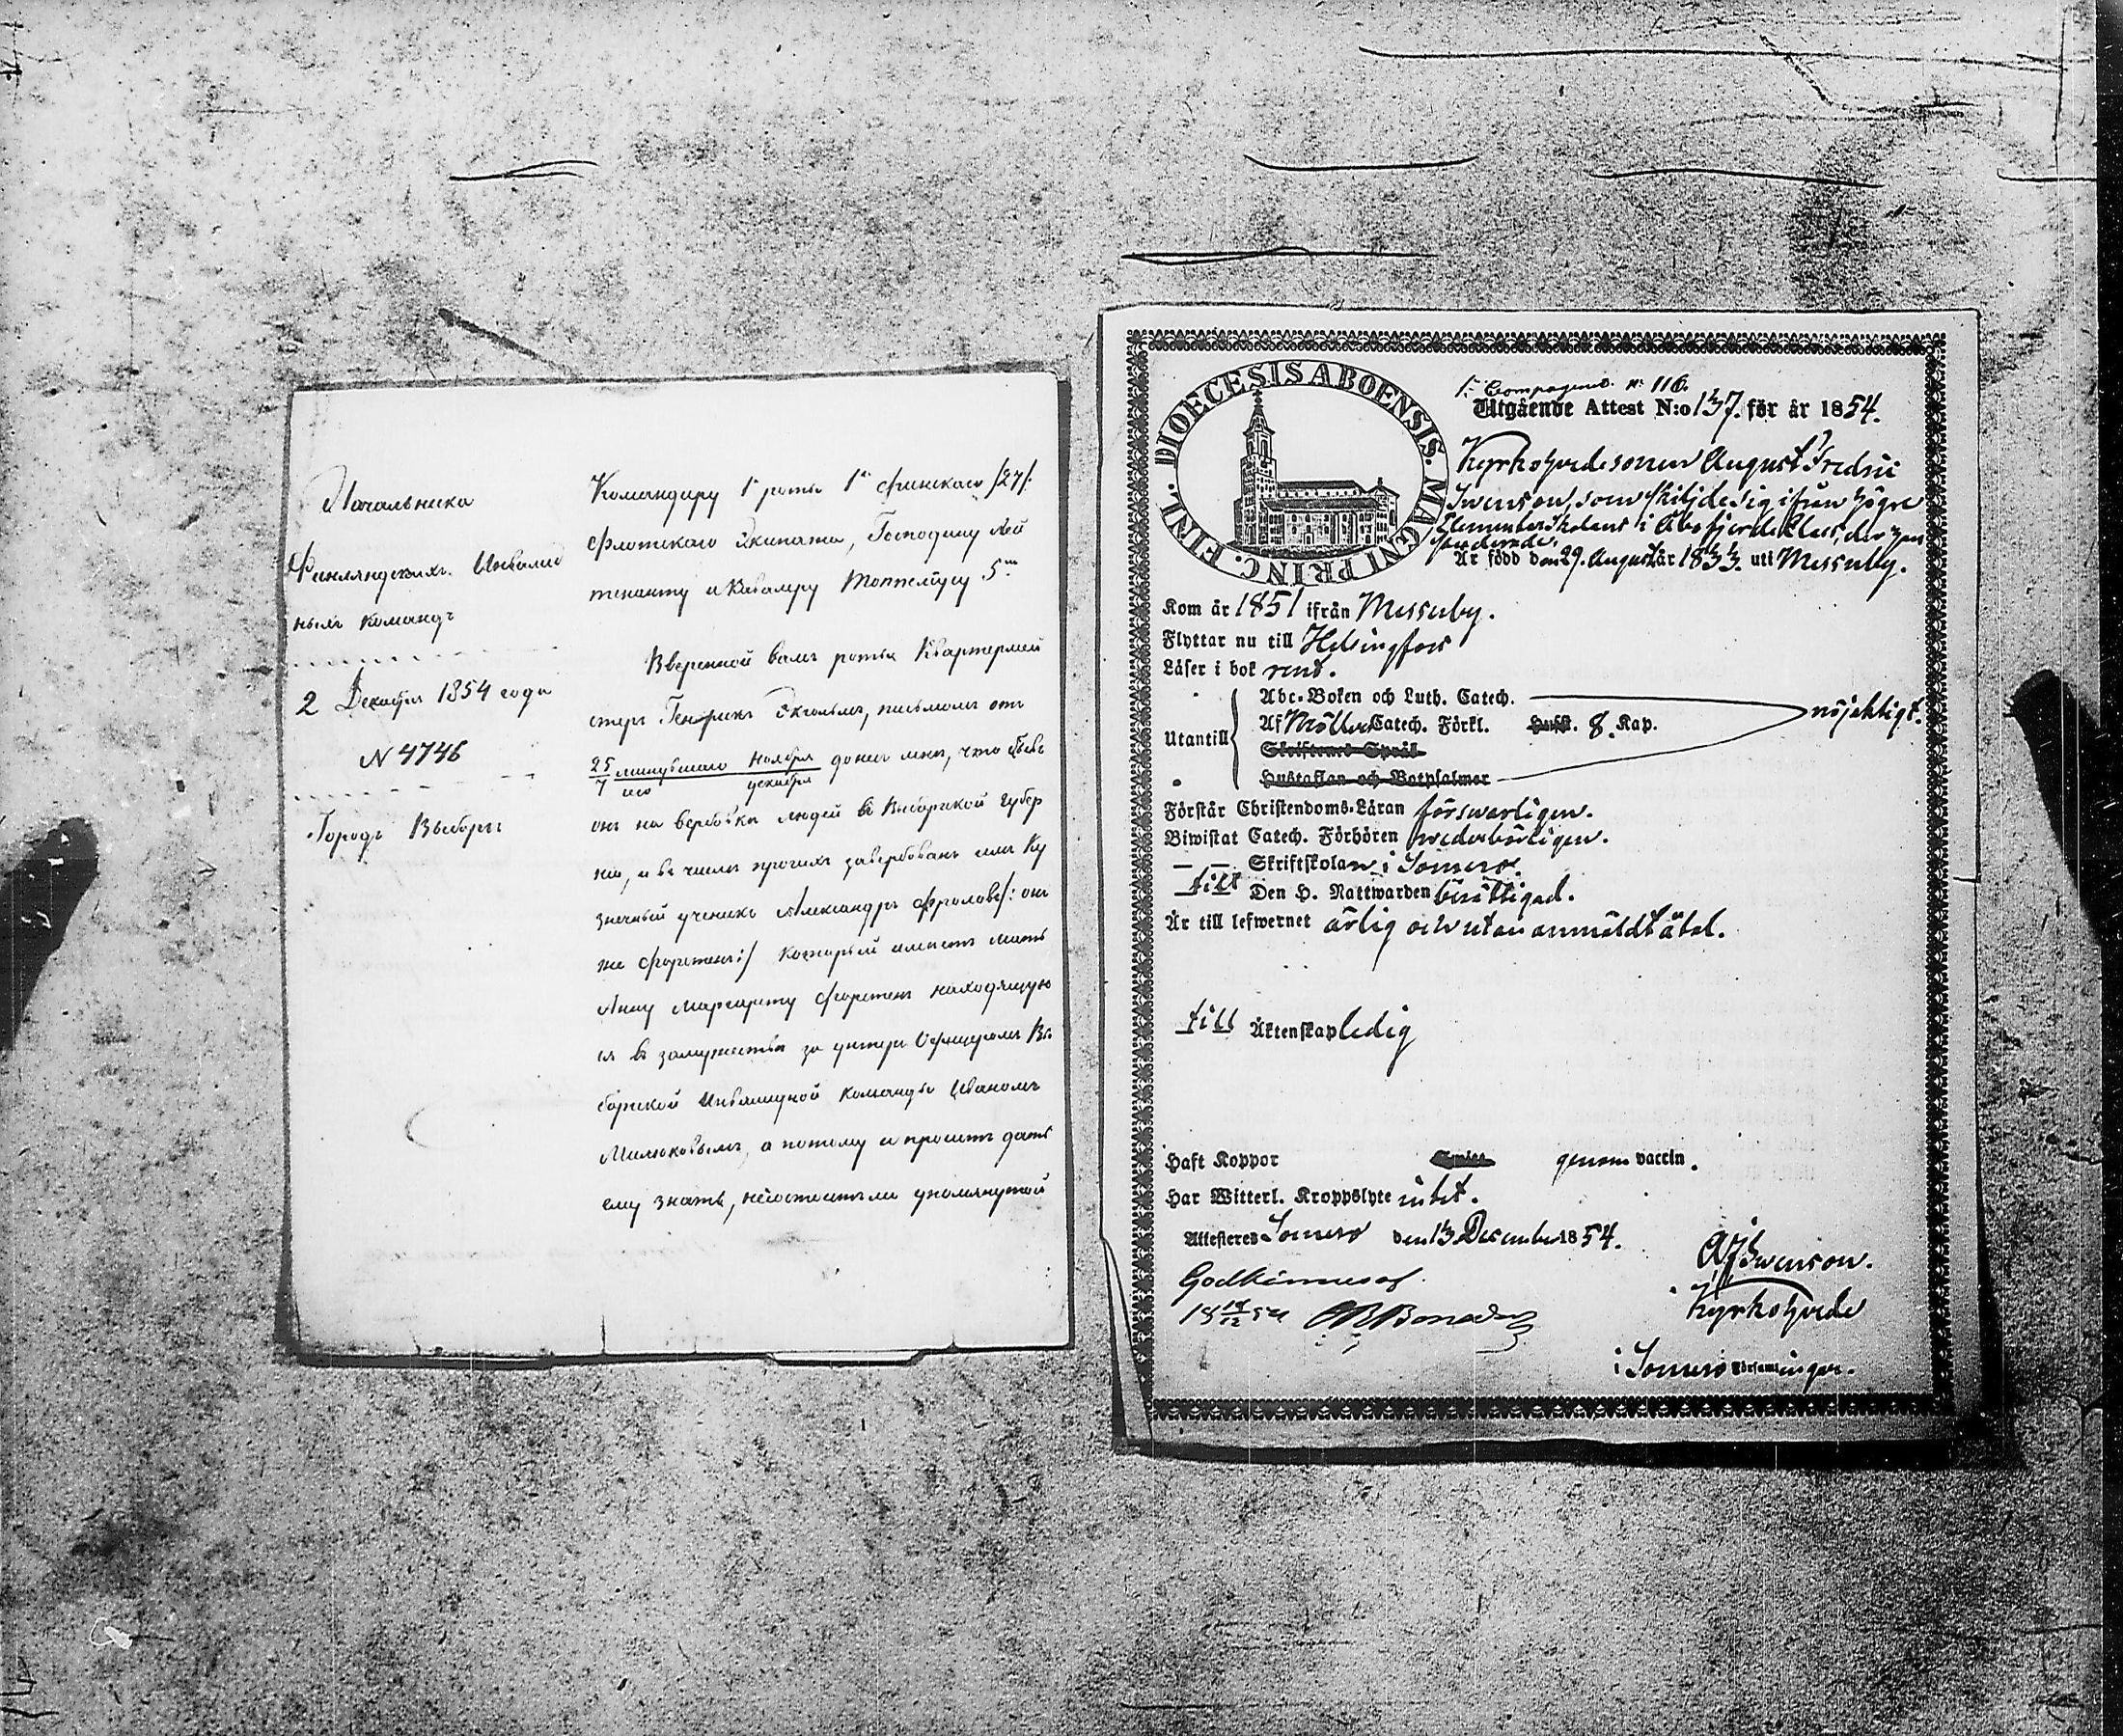 Начальника
Финляндскихъ Инвалид
ныхъ командъ
2 Декабря 1854 года
N 4746
Городъ Выборгъ
Командиру 1й роты 1го Финскаго /27/:
Флотскаго Экипажа, Господину Лей
тенанту и Кавалеру Топпеліусу 5му
Вверенной вамъ роты Квартермей
стеръ Генрихъ Экгольмъ, письмомъ отъ
25 минувшаго Ноября
7 сего декабря донесъ мнѣ, что бывъ
онъ на вербовкѣ людей въ Выборгской губер
ніи, и въ числѣ прочихъ завербованъ имъ Ку
знечный ученикъ Александръ Фроловъ /: онъ
же Форстенъ :/ который имѣетъ мать
Анну Маргарету Форстенъ находящую
ся въ замужествѣ за унтеръ Офицеромъ Вы
боргской Инвалидной команды Иваномъ
Милюковымъ, а потому и проситъ дать
ему знать, несостоитъ ли упомянутой
DIOECESIS ABOENSIS. MAGNI PRINC. FINL.
1:a Compagniet. N: 116.
Utgående Attest N:o 137. för år 1854.
Kyrkoherdesonen August Fredric
Swenson, som skiljde sig ifrån högre
Elementarskolans i Åbo fjerde Klass, der han
studerade.
Är född den 29. Augusti år 1833. uti Messuby.
Kom år 1851 ifrån Messuby.
Flyttar nu till Helsingfors
Läser i bok rent.
Utantill
Abc-Boken och Luth. Catech.
Af Möllers Catech. Förkl. Hust. 8. Kap.
nöjaktigt.
Skriftenes Språk
Hustaflan och Botpsalmer
Förstår Christendoms-Läran förswarligen.
Biwistat Catech. Förhören wederbörligen.
— — Skriftskolan i Somero.
till Den H. Nattwarden berättigad.
Är till lefwernet ärlig och utan anmäldt åtal.
till Äktenskap ledig
Haft Koppor genom vaccin.
Har Witterl. Kroppslyte intet.
Attesteres Somero den 13 December 1854.
A F Swenson.
Kyrkoherde
i Somero Församlingar.
Godkännes af
18 14/12 54